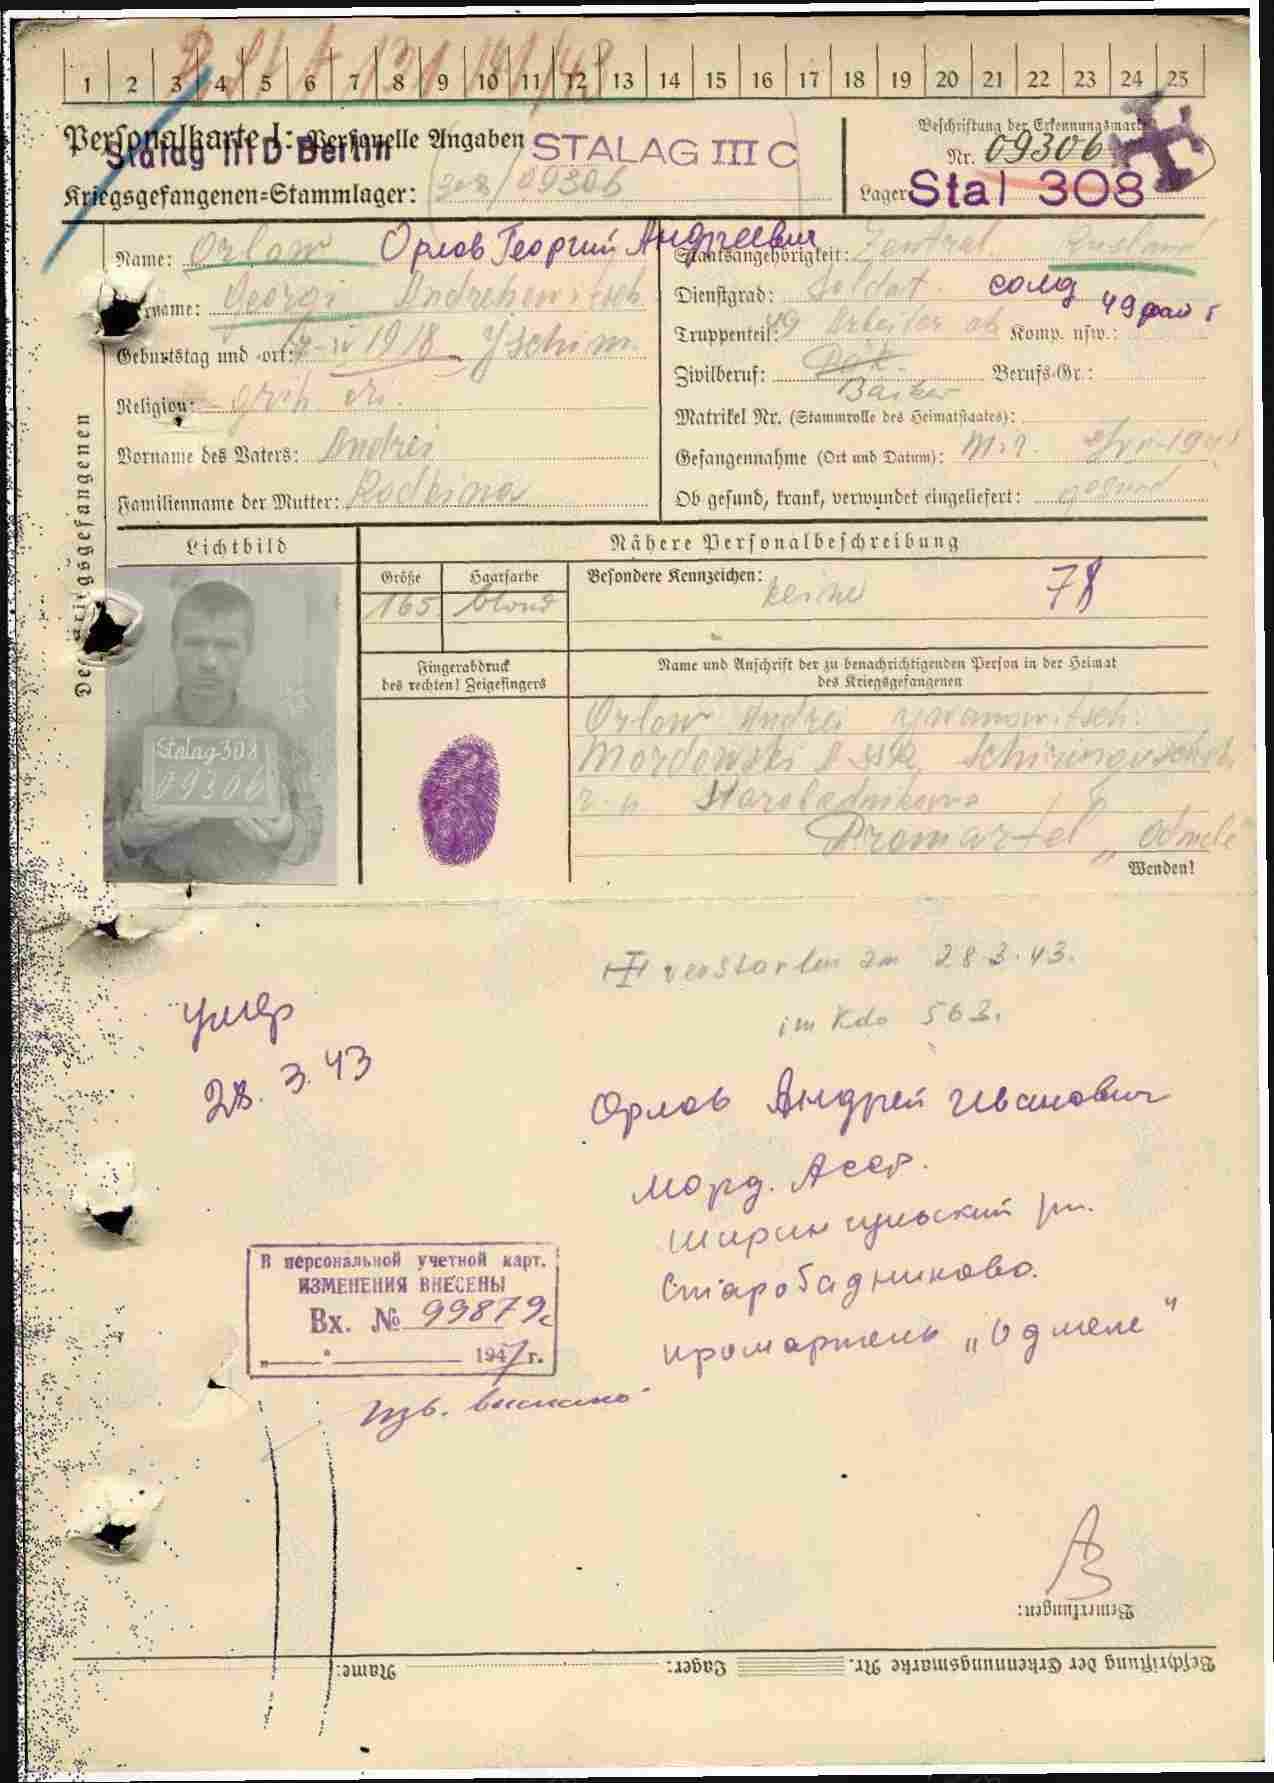 1 2 3 4 5 6 7 8 9 10 11 12 13 14 15 16 17 18 19 20 21 22 23 24 25
Personalkarte I: Personelle Angaben
Stalag III D Berlin
STALAG III C
Kriegsgefangenen=Stammlager: 308/09306
Beschriftung der Erkennungsmarke
Nr. 09306
Lager Stal 308
Des Kriegsgefangenen
Name: Orlow Орлов Георгий Андреевич
Vorname: Georgi Andrehewitsch
Geburtstag und -ort: 1918 Yschim
Religion: grch.
Vorname des Vaters: Andrei
Familienname der Mutter: Rodkina
Staatsangehörigkeit: Zentral Rusland
Dienstgrad: Soldat. солд
Truppenteil: 49 Arbeiter Komp. usw.: 49
Zivilberuf: Bäcker Berufs-Gr.:
Matrikel Nr. (Stammrolle des Heimatstaates):
Gefangennahme (Ort und Datum):
Ob gesund, krank, verwundet eingeliefert: gesund
Lichtbild
Nähere Personalbeschreibung
Größe Haarfarbe Besondere Kennzeichen: keine 78
165 blond
Fingerabdruck
des rechten! Zeigefingers
Name und Anschrift der zu benachrichtigenden Person in der Heimat
des Kriegsgefangenen
Stalag-308
09306
Orlow Andrei Ywanowitsch.
Mordowski
Promartel „Odmele
Wenden!
verstorben am 28.3.43.
im Kdo 563.
умер
28. 3. 43
Орлов Андрей Иванович
Морд. Асср.
Ширингушский рн.
Старобадиково.
промартель „Одмеле"
В персональной учетной карт.
ИЗМЕНЕНИЯ ВНЕСЕНЫ
Вх. № 99879с
„ " 1947 г.
Изв.
Bemerkungen:
Beschriftung der Erkennungsmarke Nr. Lager: Name: